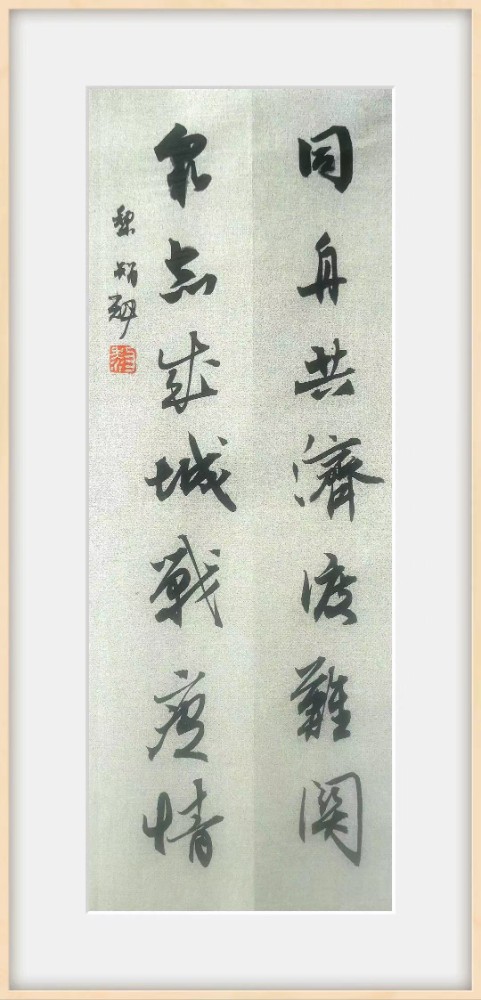 同舟共濟渡難関
衆志成城戰疫情
黎